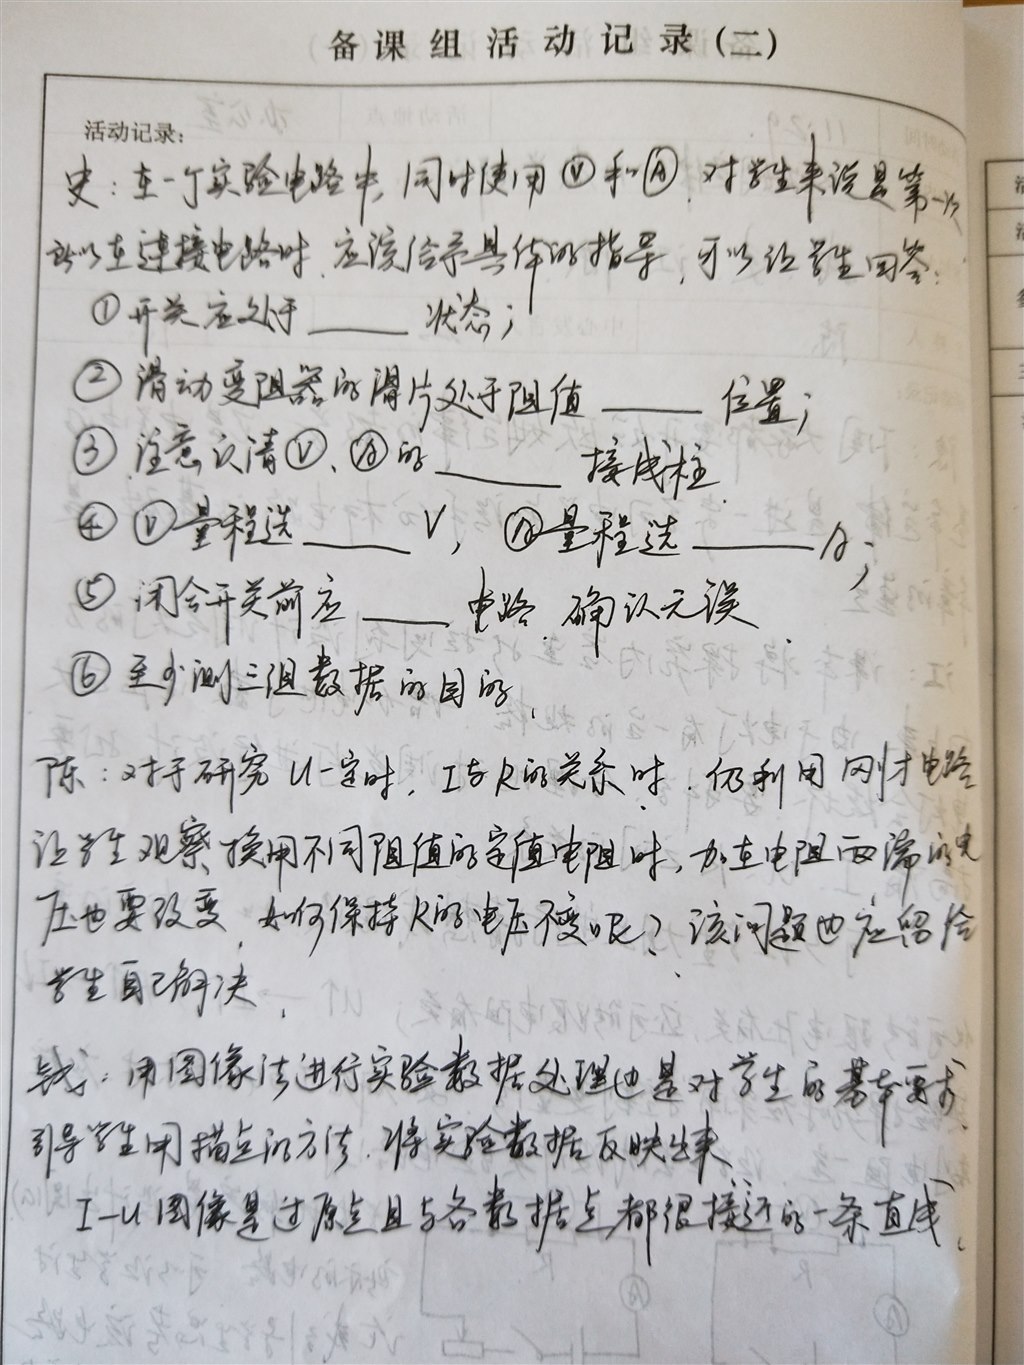 备课组活动记录(二)
活动记录:
史:在一个实验电路中,同时使用Ⓥ和Ⓐ,对学生来说是第一次
所以在连接电路时,应该给予具体的指导,可以让学生回答:
①开关应处于______状态;
②滑动变阻器的滑片处于阻值______位置;
③注意认清Ⓥ、Ⓐ的______接线柱
④Ⓥ量程选______V, Ⓐ量程选______A;
⑤闭合开关前应____电路,确认无误.
⑥至少测三组数据的目的,
陈:对于研究U一定时,I与R的关系时,仍利用刚才电路
让学生观察,换用不同阻值的定值电阻时,加在电阻两端的电
压也要改变,如何保持R的电压不变呢?该问题也应留给
学生自己解决,
钱:用图像法进行实验数据处理也是对学生的基本要求,
引导学生用描点的方法,将实验数据反映出来,
I-U图像是过原点且与各数据点都很接近的一条直线,